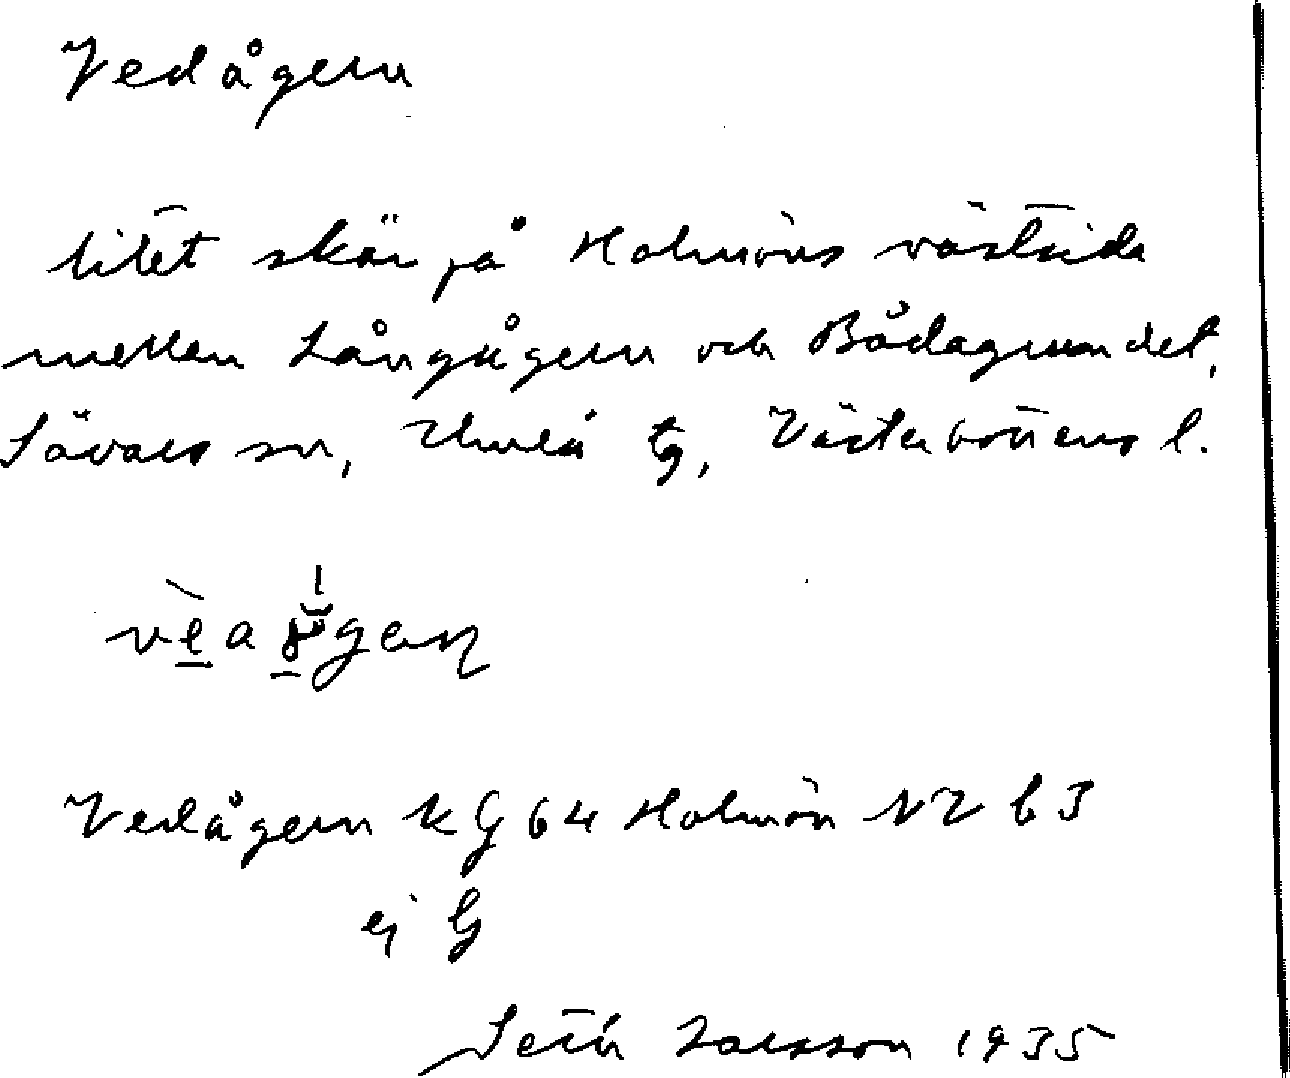 Vedågern
litet skär på Holmöns västsida
mellan Långågern och Bådagrundet,
Sävars sn, Umeå tg, Västerbottens l.
Vedågern k G 64 Holmön NV b 3
ej G
Seth Larsson 1935